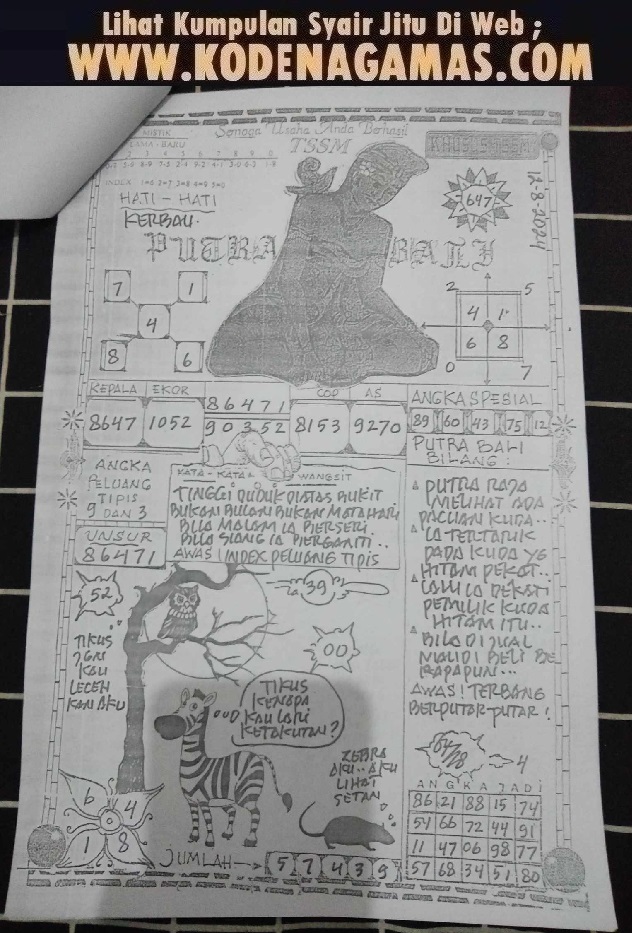 Lihat Kumpulan Syair Jitu Di Web ;
WWW.KODENAGAMAS.COM
Semoga Usaha Anda Berhasil
MISTIK
TSSM
INDEX 1=6 2=7 3=8 4=9 5=0
HATI - HATI
KERBAU
647
12-8-2024
PUTRA BALI
7 1
4
8 6
2 5
4 1
6 8
0 7
KEPALA EKOR
8647 1052
86471
90352
COP AS
8153 9270
ANGKA SPESIAL
89 60 43 75 12
ANGKA
PELUANG
TIPIS
9 DAN 3
UNSUR
86471
KATA - KATA WANGSIT
TINGGI DUDUK DIATAS BUKIT
BUKAN BULAN BUKAN MATAHARI
BILA MALAM IA BERSERI..
BILA SIANG IA BERGANTI..
AWAS! INDEX PELUANG TIPIS
PUTRA BALI
BILANG :
PUTRA RAJA
MELIHAT ADA
PACUAN KUDA..
IA TERTARIK
PADA KUDA YG
HITAM PEKAT..
LALU IA DEKATI
PEMILIK KUDA
HITAM ITU..
BILA DIJUAL
MAU DI BELI BE
RAPAPUN...
AWAS! TERBANG
BERPUTAR-PUTAR!
52
39
00
TIKUS
KAU
LECEH
KAN AKU
TIKUS
KENAPA
KAU LARI
KETAKUTAN?
ZEBRA
AKU..AKU
LIHAT
SETAN
6 4
1 8
JUMLAH
5 7 4 3 9
4
ANGKA JADI
86 21 88 15 74
54 66 72 44 91
11 47 06 98 77
57 68 34 51 80